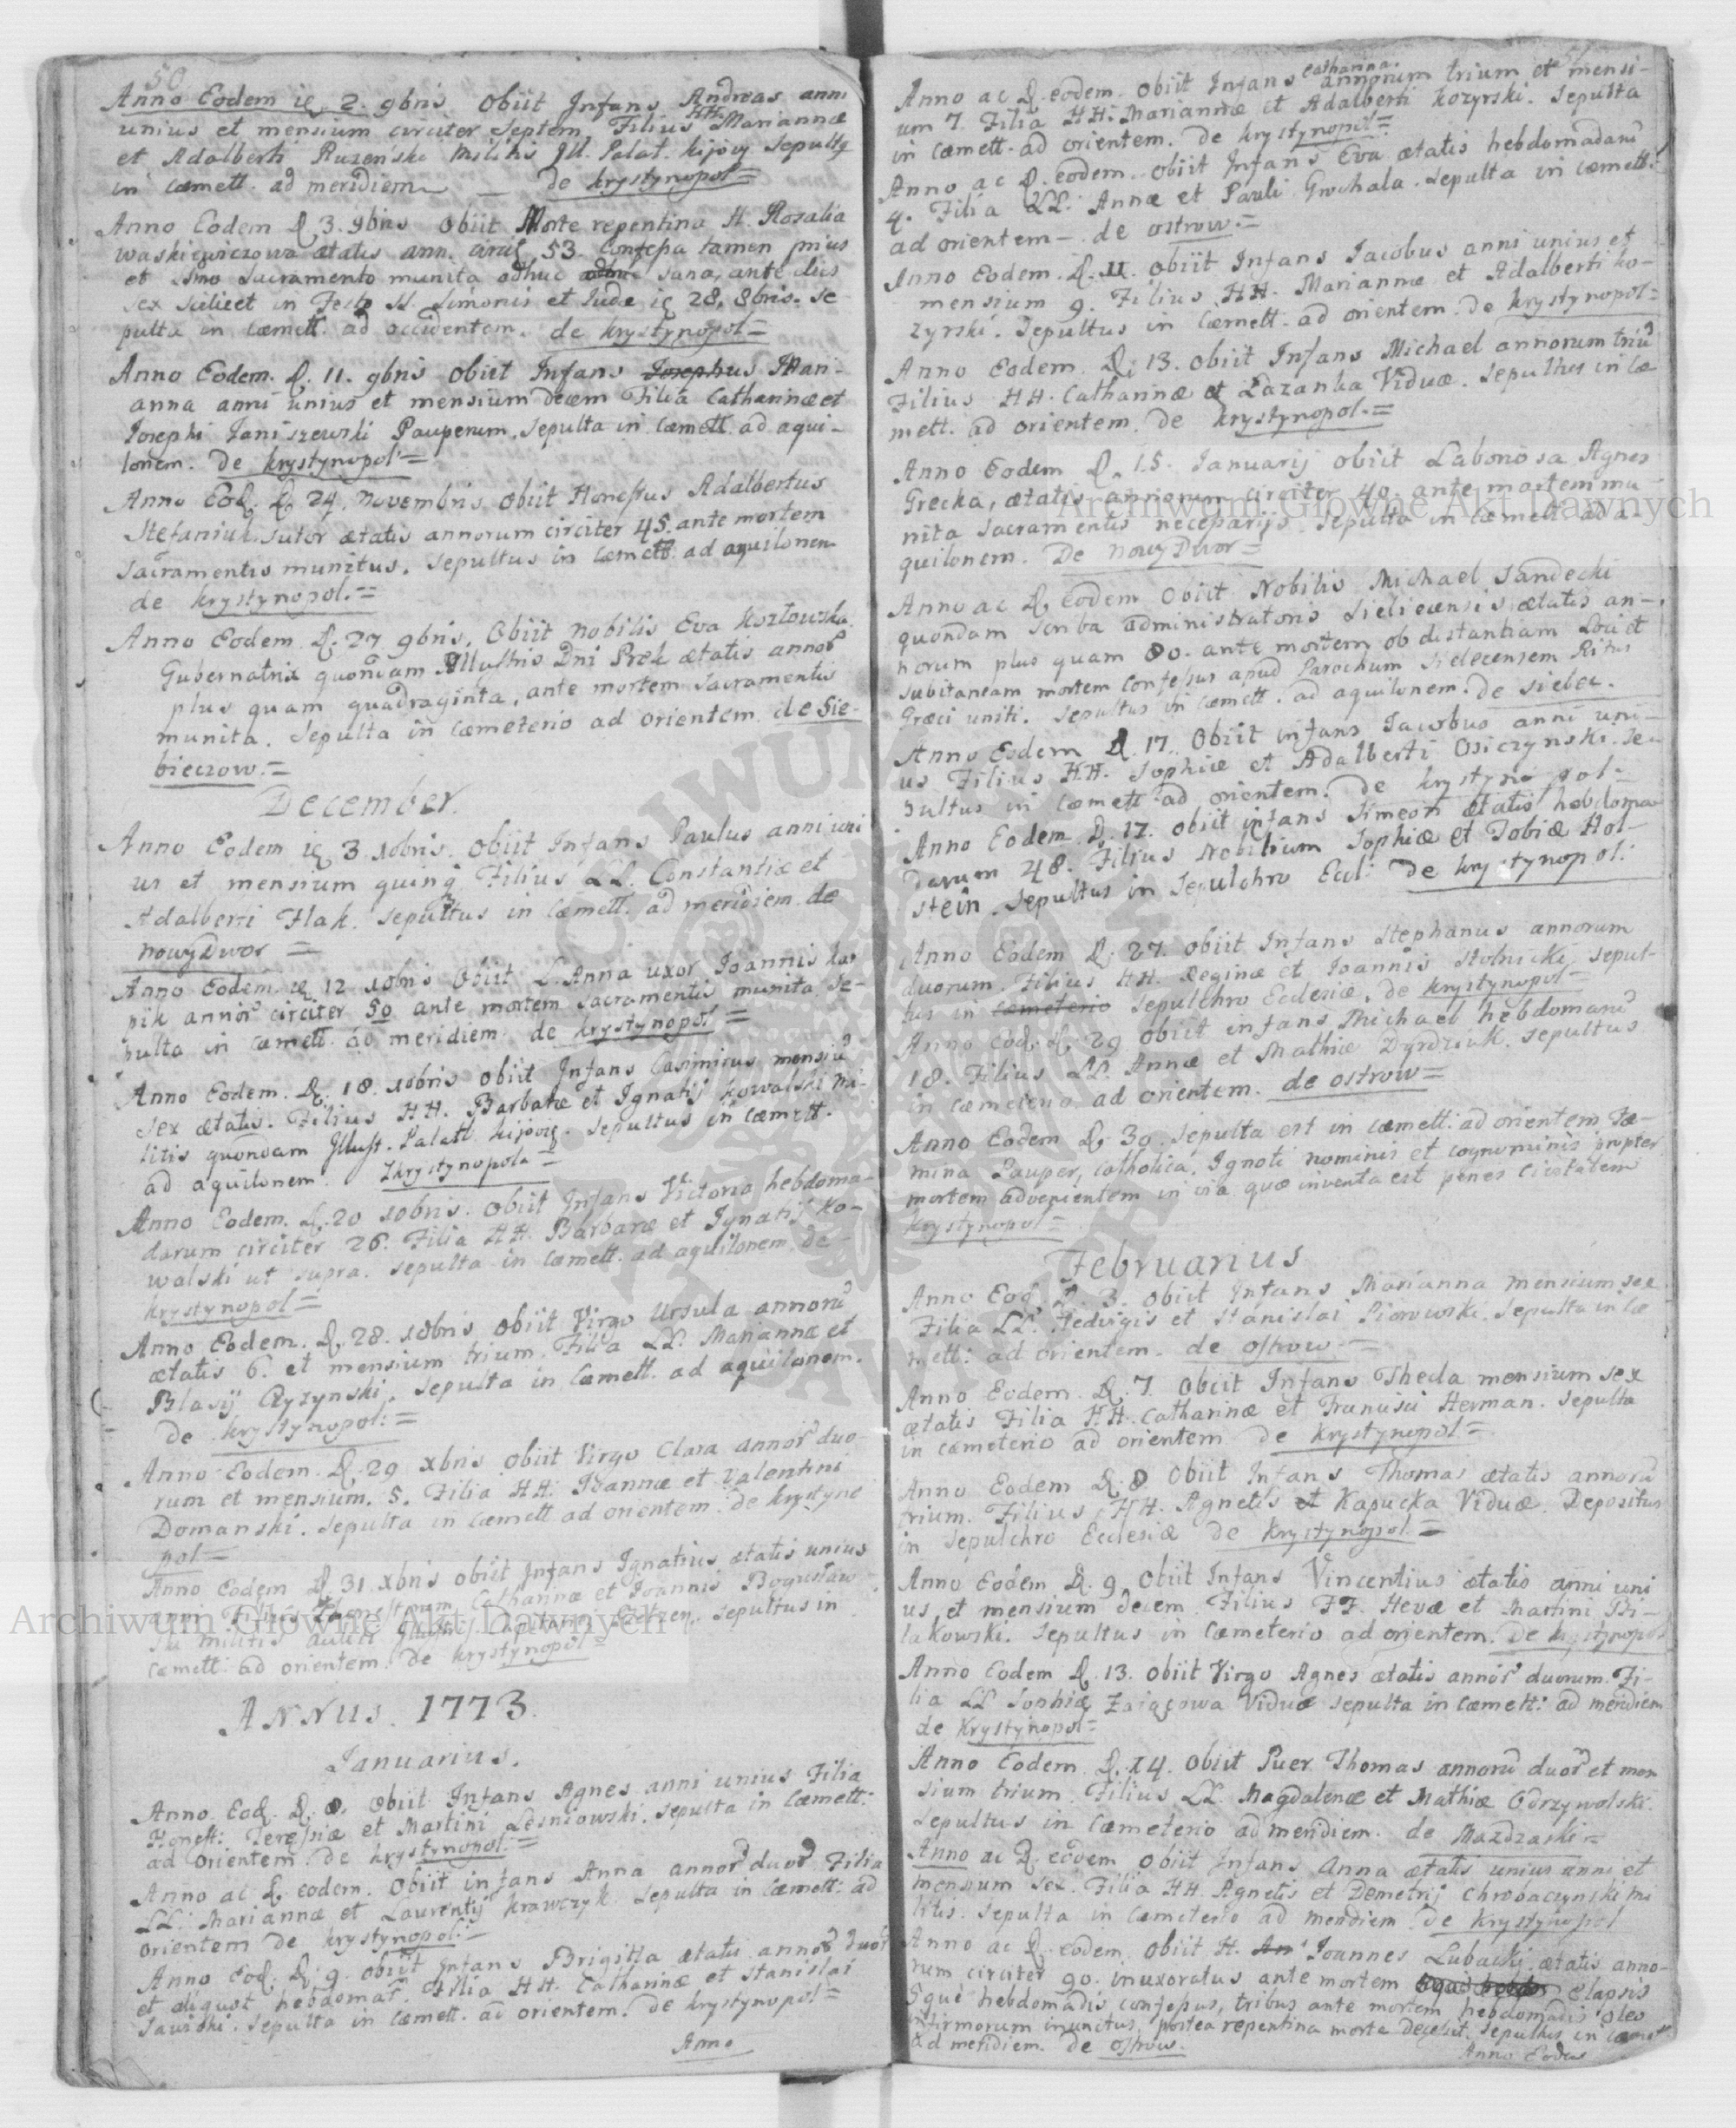 50
Anno Eodem ie 2. 9bris. Obiit Infans Andreas anni
unius et mensium circiter Septem, Filius HH. Mariannæ
et Adalberti Ruzeński Militis Ill. Palat. Kijov. Sepultq
in cæmett. ad meridiem de Krystynopol=
Anno Eodem D. 3. 9bris Obiit Morte repentina H. Rosalia
Waskiewiczowa ætatis ann. circit 53. Confessa tamen prius
et Ssmo Sacramento munita adhuc sana, ante dies
sex scilicet in Festo SS. Simonis et Judæ ie 28. 8bris. Se-
pulta in cæmett. ad occidentem. de Krystynopol=
Anno Eodem. D. 11. 9bris Obiit Infans Josephus Mari-
anna anni unius et mensium decem Filia Catharinæ et
Josephi Janiszewski Pauperum. Sepulta in Cæmett. ad aqui-
lonem. De Krystynopol=
Anno Eod. D. 24. Novembris Obiit Honestus Adalbertus
Stefaniuk Sutor ætatis annorum circiter 45. ante mortem
Sacramentis munitus. Sepultus in cæmett. ad aquilonem
de Krystynopol.=
Anno Eodem D. 27 9bris. Obiit Nobilis Eva Kozłowska
Gubernatrix quondam Illustris Dni annor
plus quam quadraginta, ante mortem Sacramentis
munita. Sepulta in Cæmeterio ad orientem de Sie-
bieczow.=
December.
Anno Eodem ie 3 10bris. Obiit Infans Paulus anni uni
us et mensium quinq Filius LL. Constantiæ et
Adalberti Flak. Sepultus in cæmett. ad meridiem de
Nowy Dwor =
Anno Eodem. ie 12 10bris Obiit L. Anna uxor Joannis Kar
pik annor circiter 50 ante mortem Sacramentis munita Se-
pulta in cæmett. ad meridiem de Krystynopol =
Anno Eodem. D. 18. 10bris Obiit Infans Casimirus mensiu
sex ætatis. Filius HH. Barbaræ et Ignatij Kowalski mi-
litis quondam Illust. Palatt. Kijov. Sepultus in Cæmett.
ad aquilonem. Zkrystynopola=
Anno Eodem. D. 20 10bris. Obiit Infans Victoria hebdoma-
darum circiter 26. Filia HH. Barbaræ et Ignatij Ko-
walski ut supra. Sepulta in Cæmett. ad aquilonem. de-
Krystynopol=
Anno Eodem. D. 28. 10bris Obiit Virgo Ursula annoru
ætatis 6. et mensium trium. Filia LL. Mariannæ et
Blasij Czyzynski. Sepulta in Cæmett. ad aquilonem.
De Krystynopol:=
Anno Eodem. D. 29 xbris Obiit Virgo Clara annor duo-
rum et mensium. 5. Filia HH. Joannæ et Valentini
Domanski. Sepulta in Cæmett ad orientem. de Krystyno
pol=
Anno Eodem D. 31 xbris obiit Infans Ignatius ætatis unius
anni Filius Honestorum Catharinæ et Joannis Bogusław
ski militis Illustr. Capitanei Sepultus in
Cæmett. ad orientem. De Krystynopol=
ANNUS. 1773.
Januarius.
Anno Eod. D. 8. Obiit Infans Agnes anni unius Filia
Honest: Teressiæ et Martini Leśniowski. Sepulta in Cæmett:
ad orientem. De Krystynopol.=
Anno ac D. eodem. Obiit infans Anna annor duor Filia
LL: Mariannæ et Laurentij Krawczyk. Sepulta in Cæmett: ad
orientem De Krystynopol.=
Anno Eod. D. 9. Obiit Infans Brigitta ætatis annor duor
et aliquot hebdomar. Filia HH. Catharinæ et Stanislai
Sawicki. Sepulta in Cæmett. ad orientem. De Krystynopol=
Anno
Anno ac D. eodem. Obiit Infans Catharina. annorum trium et mensi-
um 7. Filia HH: Mariannæ et Adalberti Kozyrski. Sepulta
in Cæmett. ad orientem. de Krystynopol=
Anno ac D. eodem. Obiit Infans Eva ætatis hebdomadaru
4. Filia LL: Annæ et Pauli Grochala. Sepulta in Cæmett:
ad orientem. de Ostrow.=
Anno Eodem. D. 11. obiit Infans Jacobus anni unius et
mensium 9. Filius HH. Mariannæ et Adalberti Ko-
zyrski. Sepultus in Cæmett. ad orientem. de Krystynopol=
Anno Eodem. D. 13. Obiit Infans Michael annorum triu
Filius HH. Catharinæ et Łazanka Viduæ. Sepultus in Cæ
mett. ad orientem. de Krystynopol.=
Anno Eodem D. 15. Januarij obiit Laboriosa Agnes
Grecka, ætatis annorum circiter 40. ante mortem mu-
nita Sacramentis necessarijs. Sepulta in Cæmett. ad a-
quilonem. De Nowy Dwor=
Anno ac D. Eodem Obiit Nobilis Michael Sandecki
quondam Scriba Administratoris Sielicensis, ætatis an-
norum plus quam 80. ante mortem, ob distantiam Loci et
subitaneam mortem Confessus apud Parochum Sielecensem Ritus
Græci uniti. Sepultus in Cæmett. ad aquilonem. De Sielec.
Anno Eodem D. 17. Obiit infans Jacobus anni uni-
us Filius HH. Sophiæ et Adalberti Osiczynski. Se-
pultus in Cæmett. ad orientem. De Krystynopol=
Anno Eodem. D. 17. obiit infans Simeon ætatis hebdoma
darum 48. Filius Nobilium Sophiæ et Tobiæ Hol-
stein. Sepultus in Sepulchro Eccl: De Krystynopol:
Anno Eodem D. 27. obiit Infans Stephanus annorum
duorum. Filius HH. Reginæ et Joannis Stolnicki sepul-
tus in cæmeterio Sepulchro Ecclesiæ. de Krystynopol=
Anno Eod. D. 29 Obiit infans Michael hebdomaru
18. Filius LL. Annæ et Mathiæ Dyrdziuk. Sepultus
in cæmeterio ad orientem. de Ostrow=
Anno Eodem D. 30. Sepulta est in cæmett: ad orientem Fæ-
mina Pauper, Catholica. Ignoti nominis et cognominis propter
mortem advenientem in via quæ inventa est penes Civitatem
Krystynopol=
Februarius
Anno Eod. D. 3. Obiit Infans Marianna mensium sex
Filia LL. Hedvigis et Stanislai Piorowski. Sepulta in Cæ
mett: ad orientem. de Ostrow.=
Anno Eodem. D. 7. Obiit Infans Thecla mensium sex
ætatis Filia HH. Catharinæ et Francisci Herman. Sepulta
in cæmeterio ad orientem de Krystynopol=
Anno Eodem D. 8 Obiit Infans Thomas ætatis annoru
trium. Filius HH. Agnetis et Kapucka Viduæ. Depositus
in Sepulchro Ecclesiæ de Krystynopol=
Anno Eodem. D. 9. Obiit Infans Vincentius ætatis anni uni
us, et mensium decem. Filius FF. Hevæ et Martini Bi-
lakowski. Sepultus in Cæmeterio ad orientem. De Krystynopol
Anno Eodem D. 13. Obiit Virgo Agnes ætatis annor duorum. Fi-
lia LL Sophiæ Zaiącowa Viduæ sepulta in Cæmett: ad meridiem
de Krystynopol=
Anno Eodem D. 14. Obiit Puer Thomas annoru duor et men
sium trium. Filius LL. Magdalenæ et Mathiæ Odrzywolski.
Sepultus in Cæmeterio ad meridiem. de Mazdzarki=
Anno ac D. eodem Obiit Infans Anna ætatis unius anni et
mensium sex. Filia HH. Agnetis et Demetrij Chrobaczynski mi
litis. Sepulta in Cæmeterio ad meridiem de Krystynopol
Anno ac D. eodem obiit H. An Joannes Lubacki ætatis anno-
rum circiter 90. inuxoratus ante mortem elapsis
5que hebdomadis confessus, tribus ante mortem hebdomadis oleo
infirmorum inunctus, postea repentina morte decessit. Sepultus in Cæmett
ad meridiem. de Ostrow.
Anno Eodem
Archiwum Główne Akt Dawnych
Archiwum Główne Akt Dawnych